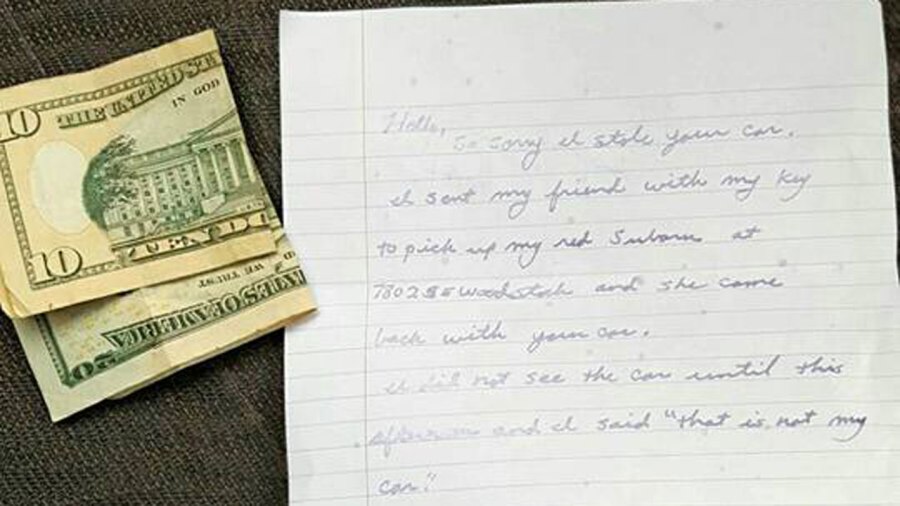 10
THE UNITED ST
IN GOD
10
TEN DO
20
STATES OF AMERICA
Hello,
So sorry I stole your car.
I sent my friend with my key
to pick up my red Subaru at
7802 SE Woodstock and she came
back with your car.
I did not see the car until this
afternoon and I said "that is not my
car."